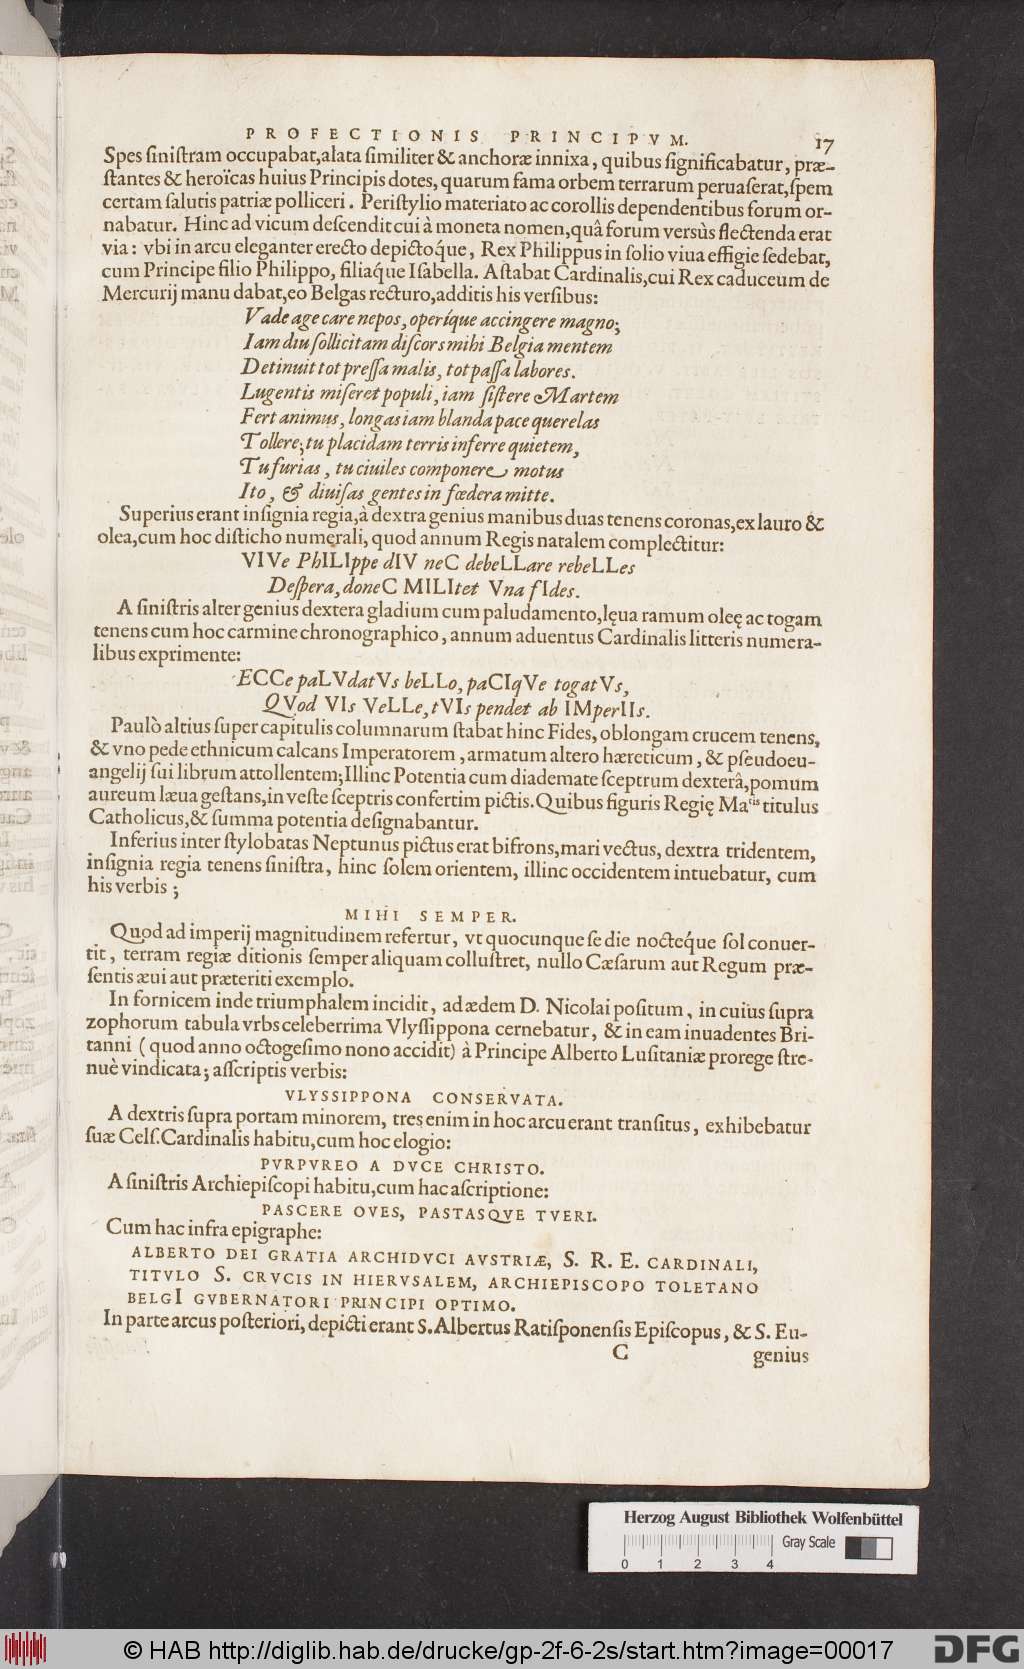 PROFECTIONIS PRINCIPVM. 17
Spes sinistram occupabat, alata similiter & anchoræ innixa, quibus significabatur, præ-
stantes & heroïcas huius Principis dotes, quarum fama orbem terrarum peruaserat, spem
certam salutis patriæ polliceri. Peristylio materiato ac corollis dependentibus forum or-
nabatur. Hinc ad vicum descendit cui à moneta nomen, quâ forum versùs flectenda erat
via: vbi in arcu eleganter erecto depictoq́ue, Rex Philippus in solio viua effigie sedebat,
cum Principe filio Philippo, filiaq́ue Isabella. Astabat Cardinalis, cui Rex caduceum de
Mercurij manu dabat, eo Belgas recturo, additis his versibus:
Vade age care nepos, operíque accingere magno;
Iam diu sollicitam discors mihi Belgia mentem
Detinuit tot pressa malis, tot passa labores.
Lugentis miseret populi, iam sistere Martem
Fert animus, longas iam blanda pace querelas
Tollere; tu placidam terris inferre quietem,
Tu furias, tu ciuiles componere motus
Ito, & diuisas gentes in fœdera mitte.
Superius erant insignia regia, à dextra genius manibus duas tenens coronas, ex lauro &
olea, cum hoc disticho numerali, quod annum Regis natalem complectitur:
VIVe PhILIppe dIV neC debeLLare rebeLLes
Despera, doneC MILItet Vna fIdes.
A sinistris alter genius dextera gladium cum paludamento, lęua ramum oleę ac togam
tenens cum hoc carmine chronographico, annum aduentus Cardinalis litteris numera-
libus exprimente:
ECCe paLVdatVs beLLo, paCIqVe togatVs,
QVod VIs VeLLe, tVIs pendet ab IMperIIs.
Paulò altius super capitulis columnarum stabat hinc Fides, oblongam crucem tenens,
& vno pede ethnicum calcans Imperatorem, armatum altero hæreticum, & pseudoeu-
angelij sui librum attollentem; Illinc Potentia cum diademate sceptrum dexterâ, pomum
aureum læua gestans, in veste sceptris confertim pictis. Quibus figuris Regię Matis titulus
Catholicus, & summa potentia designabantur.
Inferius inter stylobatas Neptunus pictus erat bifrons, mari vectus, dextra tridentem,
insignia regia tenens sinistra, hinc solem orientem, illinc occidentem intuebatur, cum
his verbis;
MIHI SEMPER.
Quod ad imperij magnitudinem refertur, vt quocunque se die nocteq́ue sol conuer-
tit, terram regiæ ditionis semper aliquam collustret, nullo Cæsarum aut Regum præ-
sentis æui aut præteriti exemplo.
In fornicem inde triumphalem incidit, ad ædem D. Nicolai positum, in cuius supra
zophorum tabula vrbs celeberrima Vlyssippona cernebatur, & in eam inuadentes Bri-
tanni (quod anno octogesimo nono accidit) à Principe Alberto Lusitaniæ prorege stre-
nuè vindicata; asscriptis verbis:
VLYSSIPPONA CONSERVATA.
A dextris supra portam minorem, tres enim in hoc arcu erant transitus, exhibebatur
suæ Cels. Cardinalis habitu, cum hoc elogio:
PVRPVREO A DVCE CHRISTO.
A sinistris Archiepiscopi habitu, cum hac ascriptione:
PASCERE OVES, PASTASQVE TVERI.
Cum hac infra epigraphe:
ALBERTO DEI GRATIA ARCHIDVCI AVSTRIÆ, S. R. E. CARDINALI,
TITVLO S. CRVCIS IN HIERVSALEM, ARCHIEPISCOPO TOLETANO
BELGI GVBERNATORI PRINCIPI OPTIMO.
In parte arcus posteriori, depicti erant S. Albertus Ratisponensis Episcopus, & S. Eu-
C genius
Herzog August Bibliothek Wolfenbüttel
Gray Scale
0 1 2 3 4
© HAB http://diglib.hab.de/drucke/gp-2f-6-2s/start.htm?image=00017
DFG